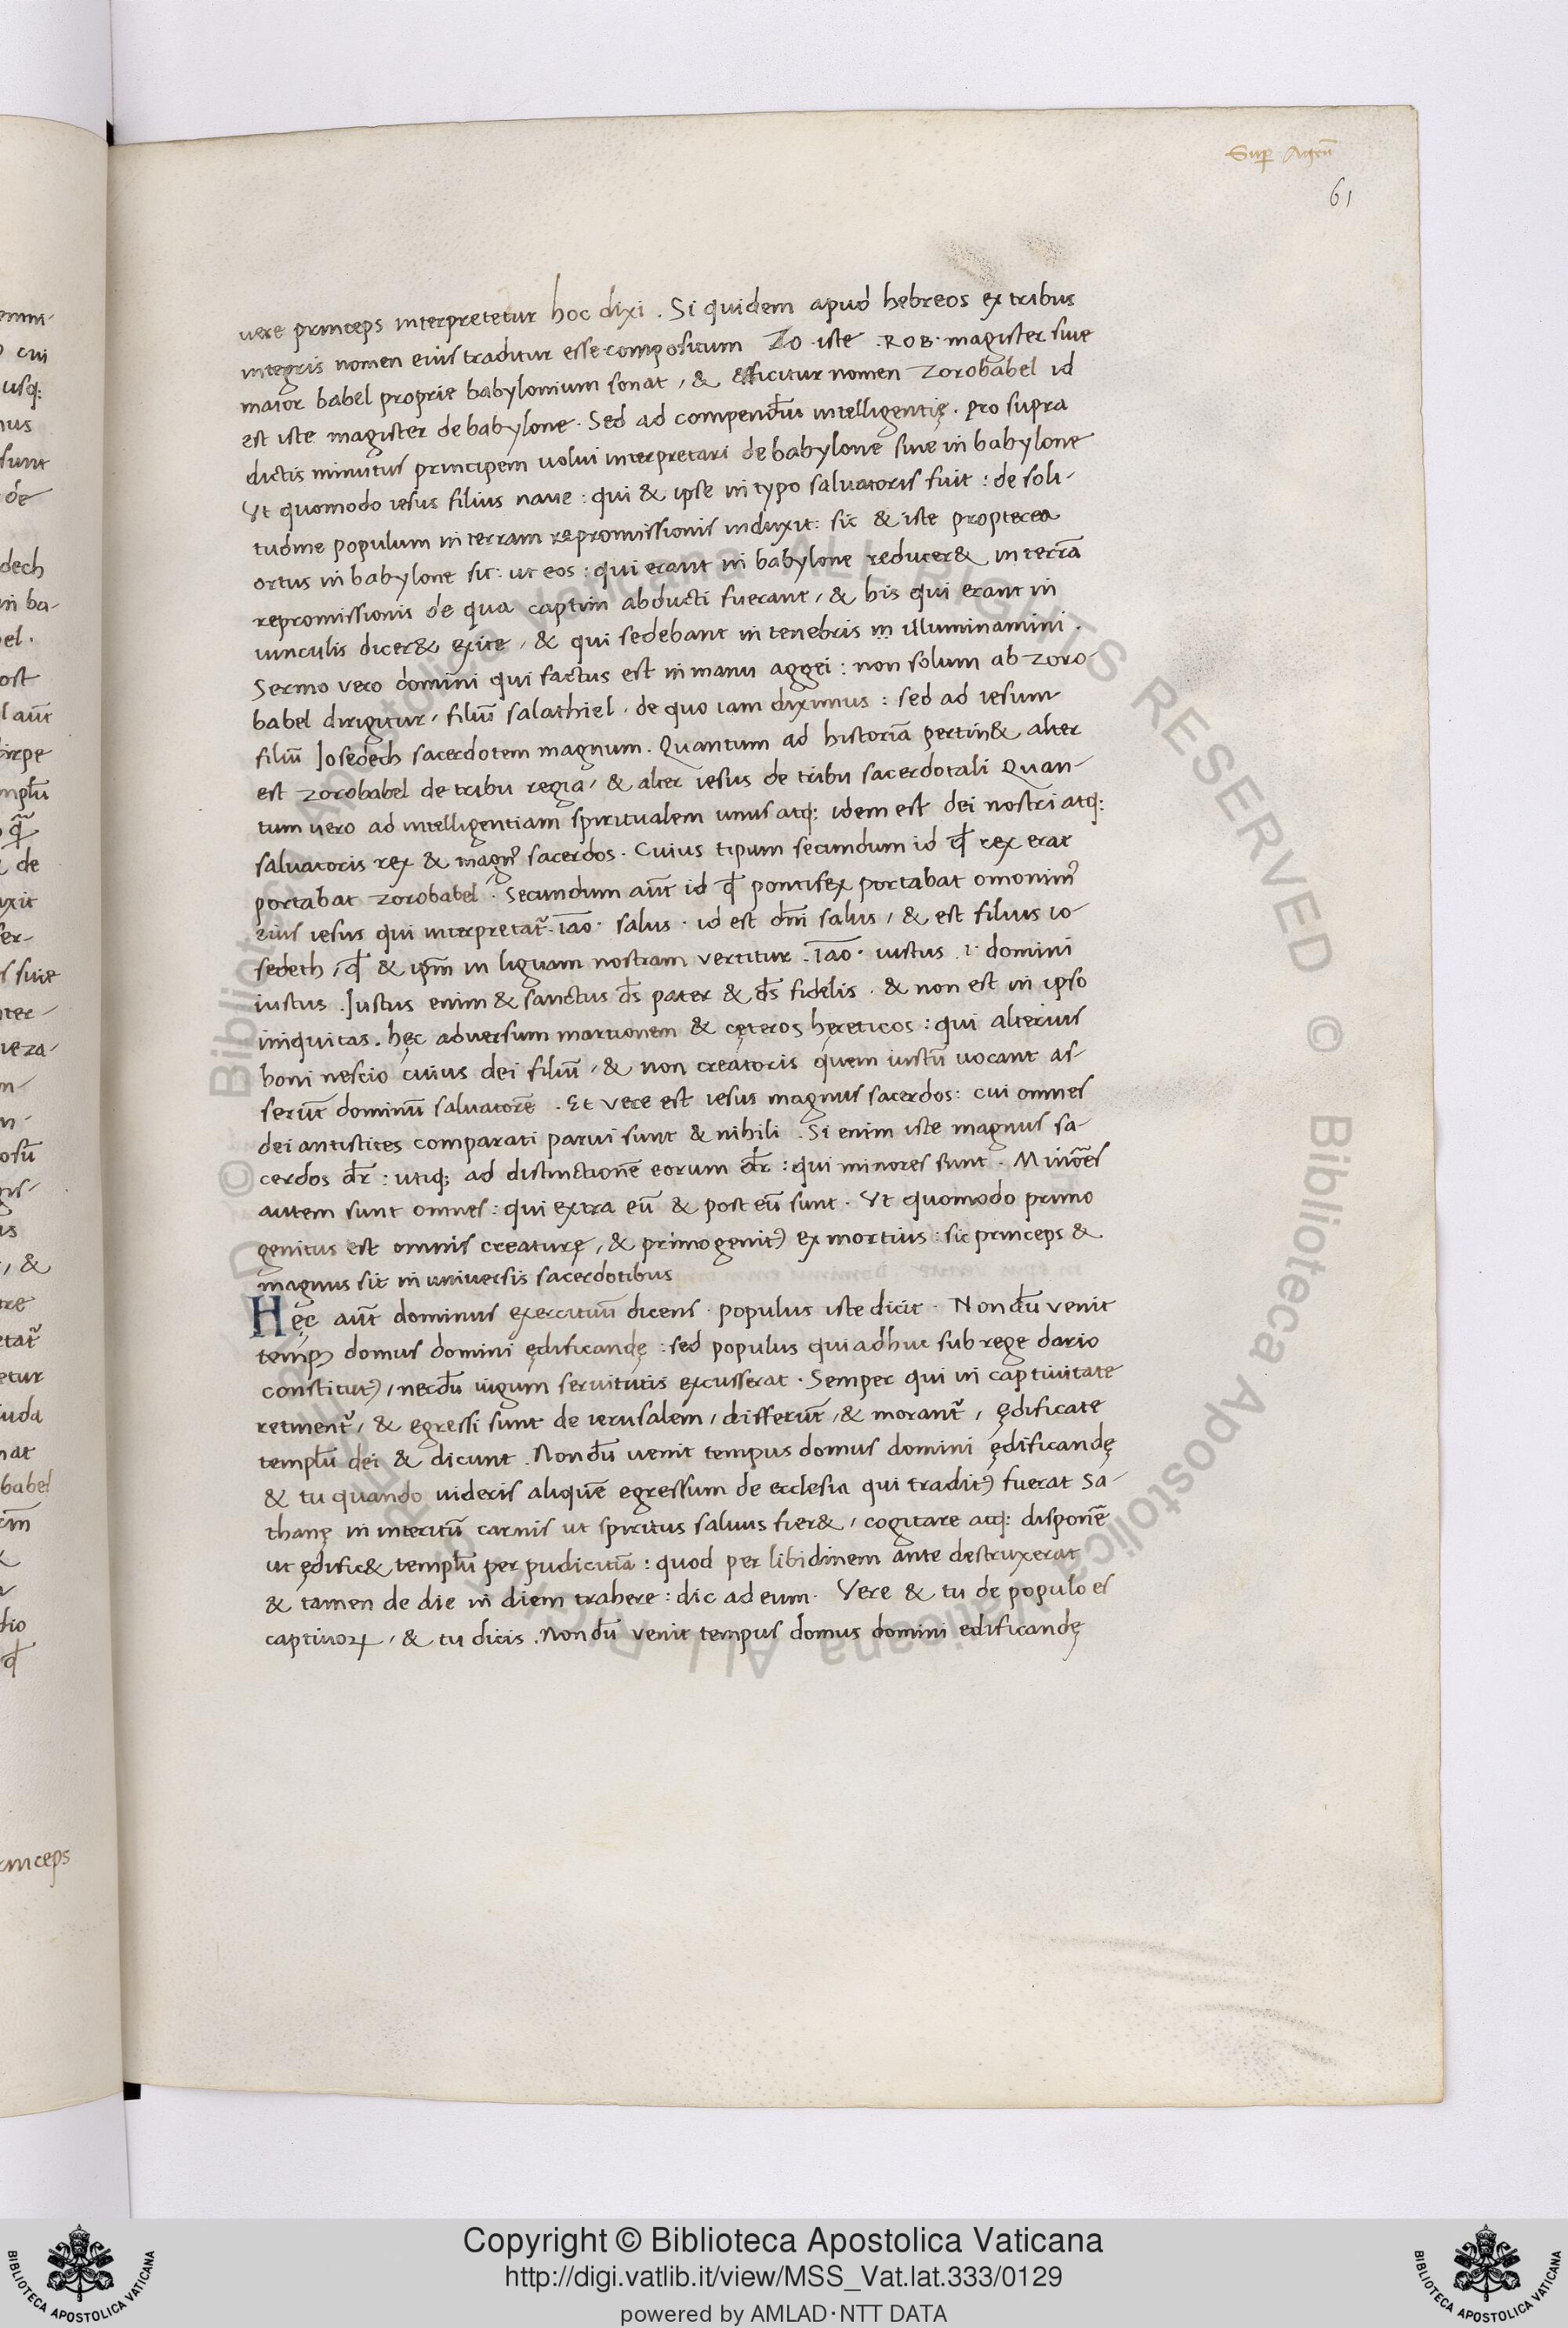 Sup Aggeū
61
vere princeps interpretetur hoc dixi . Si quidem apud hebreos ex tribus
integris nomen eius traditur esse compositum Zo iste . ROB . magister siue
maior babel proprie babylonium sonat , & efficitur nomen Zorobabel id
est iste magister de babylone . Sed ad compendiū intelligentię . pro supra
dictis minutus principem uolui interpretari de babylone siue in babylone
Vt quomodo iesus filius naue : qui & ipse in typo saluatoris fuit : de soli-
tudine populum in terram repromissionis induxit : sic & iste propterea
ortus in babylone sit : ut eos : qui erant in babylone reducer& in terrā
repromissionis de qua captiui abducti fuerant , & his qui erant in
uinculis dicer& exite , & qui sedebant in tenebris in illuminamini .
Sermo vero domini qui factus est in manu aggei : non solum ab zoro-
babel dirigitur , filiū salathiel , de quo iam diximus : sed ad iesum
filiū Josedech sacerdotem magnum . Quantum ad historiā pertin& alter
est zorobabel de tribu regia , & alter iesus de tribu sacerdotali Quan-
tum vero ad intelligentiam spiritualem unus atq; idem est dei nostri atq;
saluatoris rex & magn᾽ sacerdos . Cuius tipum secundum id qđ rex erat
portabat zorobabel . Secundum aūt id qđ pontifex portabat omonim᾽
eius iesus qui interpretat᾽ . iāo . salus . id est dn̄i salus , & est filius io-
sedech , qđ & ip̄m in liguam nostram vertitur . iāo . iustus . i . domini
iustus . Justus enim & sanctus d̄s pater & d̄s fidelis . & non est in ipso
iniquitas . hęc adversum martionem & cęteros hęreticos : qui alterius
boni nescio cuius dei filiū , & non creatoris quem iustū uocant as-
serūt dominū saluatorē . Et vere est iesus magnus sacerdos : cui omnes
dei antistites comparati parui sunt & nihili . Si enim iste magnus sa-
cerdos dr̄ : utiq; ad distinctionē eorum dr̄ : qui minores sunt . Minōes
autem sunt omnes : qui extra eū & post eū sunt . Vt quomodo primo
genitus est omnis creaturę , & primogenitꝰ ex mortuis : sic princeps &
magnus sit in universis sacerdotibus
Hęc aūt dominus exercituū dicens . populus iste dicit . Nondū venit
tempꝰ domus domini ędificandę : sed populus qui adhuc sub rege dario
constitutꝰ , necdū iugum seruitutis excusserat . Semper qui in captiuitate
retinent᾽ , & egressi sunt de ierusalem , differūt , & morant᾽ , ędificare
templū dei & dicunt . Nondū uenit tempus domus domini ędificandę
& tu quando uideris aliquē egressum de ecclesia qui traditꝰ fuerat sa-
thanę in interitū carnis ut spiritus saluus fier& , cogitare atq; disponē
ut ędific& templū per pudicitiā : quod per libidinem ante destruxerat
& tamen de die in diem trahere : dic ad eum . Vere & tu de populo es
captiuoꝝ , & tu dicis . Nondū venit tempus domus domini edificandę
Copyright © Biblioteca Apostolica Vaticana
http://digi.vatlib.it/view/MSS_Vat.lat.333/0129
powered by AMLAD·NTT DATA
BIBLIOTECA APOSTOLICA VATICANA
BIBLIOTECA APOSTOLICA VATICANA